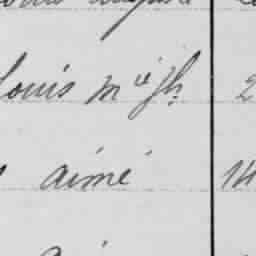 Louis Mie Jh. 2
aimé 14